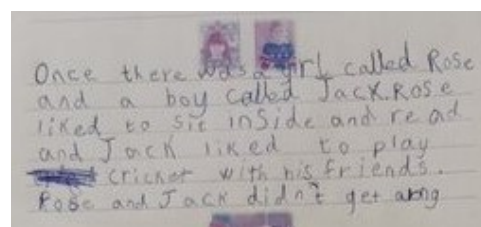 Once there was a girl called Rose
and a boy called Jack. Rose
liked to sit inside and read
and Jack liked to play
cricket with his friends.
Rose and Jack didn't get along